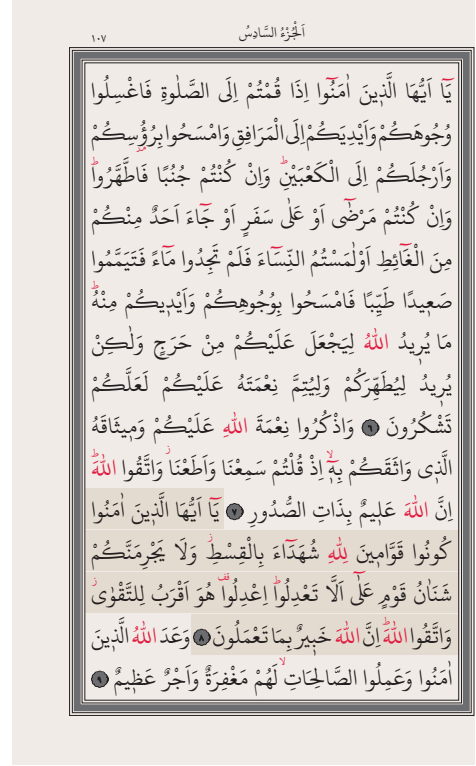 اَلْجُزْءُ السَّادِسُ
١٠٧
يَٓا اَيُّهَا الَّذ۪ينَ اٰمَنُٓوا اِذَا قُمْتُمْ اِلَى الصَّلٰوةِ فَاغْسِلُوا
وُجُوهَكُمْ وَاَيْدِيَكُمْ اِلَى الْمَرَافِقِ وَامْسَحُوا بِرُؤُ۫سِكُمْ
وَاَرْجُلَكُمْ اِلَى الْكَعْبَيْنِۜ وَاِنْ كُنْتُمْ جُنُبًا فَاطَّهَّرُواۜ
وَاِنْ كُنْتُمْ مَرْضٰٓى اَوْ عَلٰى سَفَرٍ اَوْ جَٓاءَ اَحَدٌ مِنْكُمْ
مِنَ الْغَٓائِطِ اَوْلٰمَسْتُمُ النِّسَٓاءَ فَلَمْ تَجِدُوا مَٓاءً فَتَيَمَّمُوا
صَع۪يدًا طَيِّبًا فَامْسَحُوا بِوُجُوهِكُمْ وَاَيْد۪يكُمْ مِنْهُۜ
مَا يُر۪يدُ اللّٰهُ لِيَجْعَلَ عَلَيْكُمْ مِنْ حَرَجٍ وَلٰكِنْ
يُر۪يدُ لِيُطَهِّرَكُمْ وَلِيُتِمَّ نِعْمَتَهُ عَلَيْكُمْ لَعَلَّكُمْ
تَشْكُرُونَ ﴿٦﴾ وَاذْكُرُوا نِعْمَةَ اللّٰهِ عَلَيْكُمْ وَم۪يثَاقَهُ
الَّذ۪ي وَاثَقَكُمْ بِه۪ٓۙ اِذْ قُلْتُمْ سَمِعْنَا وَاَطَعْنَاۘ وَاتَّقُوا اللّٰهَۜ
اِنَّ اللّٰهَ عَل۪يمٌ بِذَاتِ الصُّدُورِ ﴿٧﴾ يَٓا اَيُّهَا الَّذ۪ينَ اٰمَنُوا
كُونُوا قَوَّام۪ينَ لِلّٰهِ شُهَدَٓاءَ بِالْقِسْطِۘ وَلَا يَجْرِمَنَّكُمْ
شَنَاٰنُ قَوْمٍ عَلٰٓى اَلَّا تَعْدِلُواۜ اِعْدِلُوا۠ هُوَ اَقْرَبُ لِلتَّقْوٰىۘ
وَاتَّقُوا اللّٰهَۜ اِنَّ اللّٰهَ خَب۪يرٌ بِمَا تَعْمَلُونَ ﴿٨﴾ وَعَدَ اللّٰهُ الَّذ۪ينَ
اٰمَنُوا وَعَمِلُوا الصَّالِحَاتِۙ لَهُمْ مَغْفِرَةٌ وَاَجْرٌ عَظ۪يمٌ ﴿٩﴾